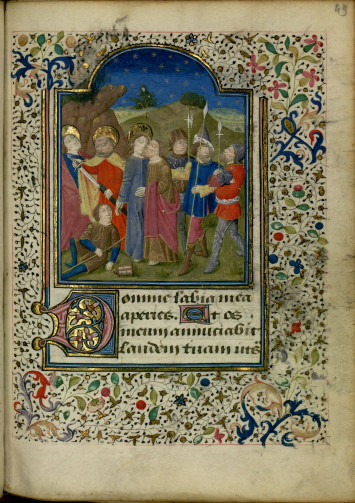 49
Domine labia mea
aperies. Et os
meum annuciabit
laudem tuam uts